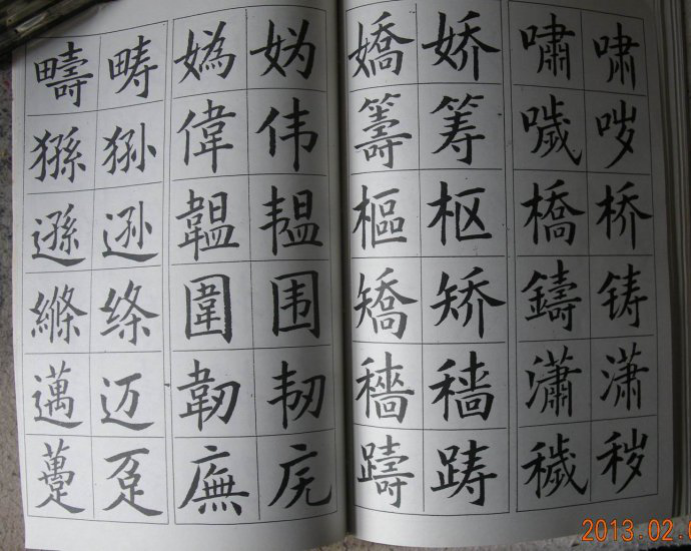 疇 畴 媯 妫 嬌 娇 嘯 啸
猻 狲 偉 伟 籌 筹 噦 哕
遜 逊 韞 韫 樞 枢 橋 桥
縧 绦 圍 围 矯 矫 鑄 铸
邁 迈 韌 韧 穡 穑 瀟 潇
躉 趸 廡 庑 躊 踌 穢 秽
2013.02.0